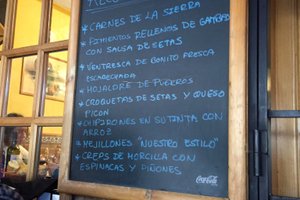 * CARNES DE LA SIERRA
* PIMIENTOS RELLENOS DE GAMBAS
CON SALSA DE SETAS
* VENTRESCA DE BONITO FRESCA
ESCABECHADA
* HOJALDRE DE PUERROS
* CROQUETAS DE SETAS Y QUESO
PICON
* CHIPIRONES EN SU TINTA CON
ARROZ
* MEJILLONES "NUESTRO ESTILO"
* CREPS DE MORCILLA CON
ESPINACAS Y PIÑONES
Coca-Cola